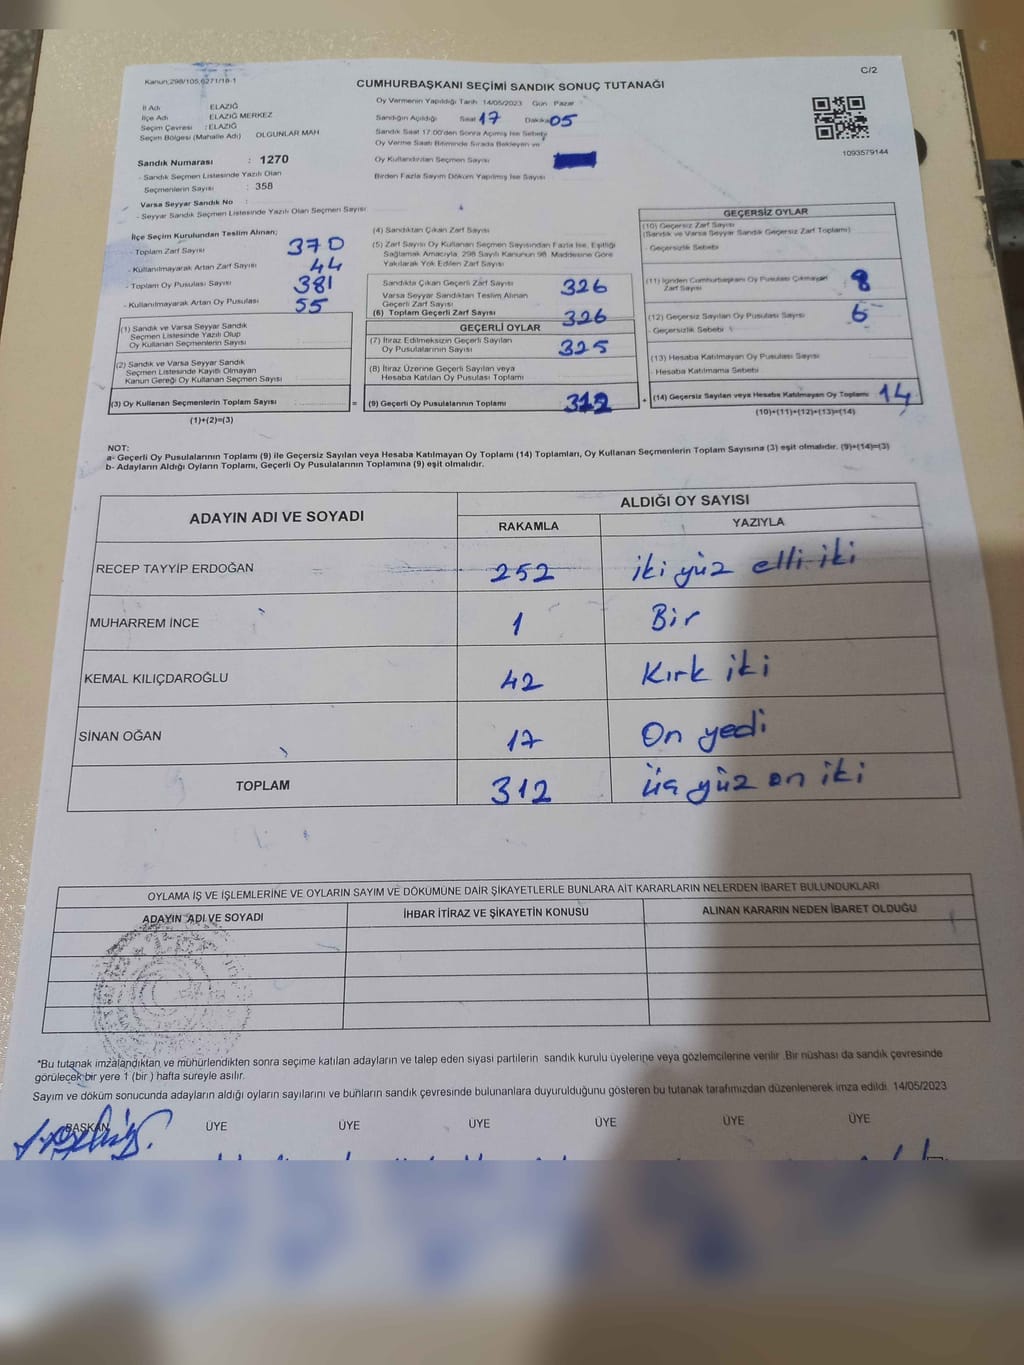 Kanun:298/105,6271/18-1
C/2
CUMHURBAŞKANI SEÇİMİ SANDIK SONUÇ TUTANAĞI
İl Adı ELAZIĞ
İlçe Adı ELAZIĞ MERKEZ
Seçim Çevresi : ELAZIĞ
Seçim Bölgesi (Mahalle Adı) OLGUNLAR MAH
Sandık Numarası : 1270
- Sandık Seçmen Listesinde Yazılı Olan
Seçmenlerin Sayısı : 358
Varsa Seyyar Sandık No :
- Seyyar Sandık Seçmen Listesinde Yazılı Olan Seçmen Sayısı
Oy Vermenin Yapıldığı Tarih 14/05/2023 Gün Pazar
Sandığın Açıldığı Saat 17 Dakika 05
Sandık Saat 17.00'den Sonra Açılmış İse Sebebi
Oy Verme Saati Bitiminde Sırada Bekleyen ve
Oy Kullandırılan Seçmen Sayısı
Birden Fazla Sayım Döküm Yapılmış İse Sayısı
1093579144
İlçe Seçim Kurulundan Teslim Alınan;
- Toplam Zarf Sayısı 370
- Kullanılmayarak Artan Zarf Sayısı 44
- Toplam Oy Pusulası Sayısı 381
- Kullanılmayarak Artan Oy Pusulası 55
(1) Sandık ve Varsa Seyyar Sandık
Seçmen Listesinde Yazılı Olup
Oy Kullanan Seçmenlerin Sayısı
(2) Sandık ve Varsa Seyyar Sandık
Seçmen Listesinde Kayıtlı Olmayan
Kanun Gereği Oy Kullanan Seçmen Sayısı
(3) Oy Kullanan Seçmenlerin Toplam Sayısı =
(1)+(2)=(3)
(4) Sandıktan Çıkan Zarf Sayısı
(5) Zarf Sayısı Oy Kullanan Seçmen Sayısından Fazla İse, Eşitliği
Sağlamak Amacıyla, 298 Sayılı Kanunun 98. Maddesine Göre
Yakılarak Yok Edilen Zarf Sayısı
Sandıkta Çıkan Geçerli Zarf Sayısı 326
Varsa Seyyar Sandıktan Teslim Alınan
Geçerli Zarf Sayısı
(6) Toplam Geçerli Zarf Sayısı 326
GEÇERLİ OYLAR
(7) İtiraz Edilmeksizin Geçerli Sayılan
Oy Pusulalarının Sayısı 325
(8) İtiraz Üzerine Geçerli Sayılan veya
Hesaba Katılan Oy Pusulası Toplamı
(9) Geçerli Oy Pusulalarının Toplamı 312 +
GEÇERSİZ OYLAR
(10) Geçersiz Zarf Sayısı
(Sandık ve Varsa Seyyar Sandık Geçersiz Zarf Toplamı)
- Geçersizlik Sebebi
(11) İçinden Cumhurbaşkanı Oy Pusulası Çıkmayan
Zarf Sayısı 8
(12) Geçersiz Sayılan Oy Pusulası Sayısı 6
- Geçersizlik Sebebi
(13) Hesaba Katılmayan Oy Pusulası Sayısı
- Hesaba Katılmama Sebebi
(14) Geçersiz Sayılan veya Hesaba Katılmayan Oy Toplamı 14
(10)+(11)+(12)+(13)=(14)
NOT:
a- Geçerli Oy Pusulalarının Toplamı (9) ile Geçersiz Sayılan veya Hesaba Katılmayan Oy Toplamı (14) Toplamları, Oy Kullanan Seçmenlerin Toplam Sayısına (3) eşit olmalıdır. (9)+(14)=(3)
b- Adayların Aldığı Oyların Toplamı, Geçerli Oy Pusulalarının Toplamına (9) eşit olmalıdır.
ADAYIN ADI VE SOYADI ALDIĞI OY SAYISI
RAKAMLA YAZIYLA
RECEP TAYYİP ERDOĞAN 252 iki yüz elli iki
MUHARREM İNCE 1 Bir
KEMAL KILIÇDAROĞLU 42 Kırk iki
SİNAN OĞAN 17 On yedi
TOPLAM 312 üç yüz on iki
OYLAMA İŞ VE İŞLEMLERİNE VE OYLARIN SAYIM VE DÖKÜMÜNE DAİR ŞİKAYETLERLE BUNLARA AİT KARARLARIN NELERDEN İBARET BULUNDUKLARI
ADAYIN ADI VE SOYADI İHBAR İTİRAZ VE ŞİKAYETİN KONUSU ALINAN KARARIN NEDEN İBARET OLDUĞU
*Bu tutanak imzalandıktan ve mühürlendikten sonra seçime katılan adayların ve talep eden siyasi partilerin sandık kurulu üyelerine veya gözlemcilerine verilir. Bir nüshası da sandık çevresinde
görülecek bir yere 1 (bir) hafta süreyle asılır.
Sayım ve döküm sonucunda adayların aldığı oyların sayılarını ve bunların sandık çevresinde bulunanlara duyurulduğunu gösteren bu tutanak tarafımızdan düzenlenerek imza edildi. 14/05/2023
BAŞKAN ÜYE ÜYE ÜYE ÜYE ÜYE ÜYE